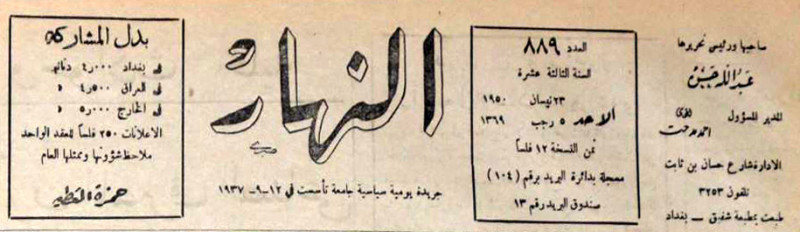 صاحبها ورئيس تحريرها
عبدالله حسن
المدير المسؤول
احمد مدحت
الادارة شارع حسان بن ثابت
تلفون ٣٢٥٣
طبعت بمطبعة شفيق — بغداد
العدد ٨٨٩
السنة الثالثة عشرة
الاحد
٢٣ نيسان ١٩٥٠
٥ رجب ١٣٦٩
ثمن النسخة ١٢ فلساً
مسجلة بدائرة البريد برقم (١٠٤)
صندوق البريد رقم ١٣
النهار
جريدة يومية سياسية جامعة تأسست في ١٢-٩-١٩٣٧
بدل المشاركة
في بغداد ٤٫٠٠٠ دنانير
في العراق ٤٫٥٠٠ «
في الخارج ٥٫٠٠٠ «
الاعلانات ٢٥٠ فلساً للعقد الواحد
ملاحظ شؤونها وممثلها العام
حمزة